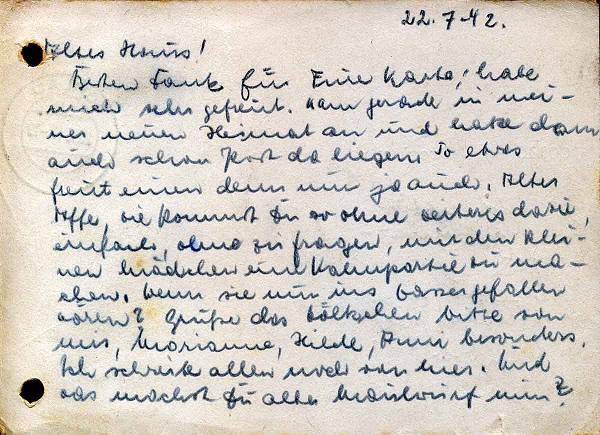 22.7.42.
Altes Haus!
Besten Dank für Eure Karte, habe
mich sehr gefreut. Kam gerade in mei-
ner neuen Heimat an und hatte dann
auch schon Post da liegen. So etwas
freut einen denn nun ja auch. Alter
Affe, wie kommst Du so ohne weiteres dazu,
einfach, ohne zu fragen, mit den klei-
nen Mädchen eine Kahnpartie zu ma-
chen. Wenn sie nun ins Wasser gefallen
wären? Grüße das Völkchen bitte von
mir, Marianne, Hilde, Anni besonders.
Ich schreibe allen noch von hier. Und
was machst Du alter Maulwurf nun?